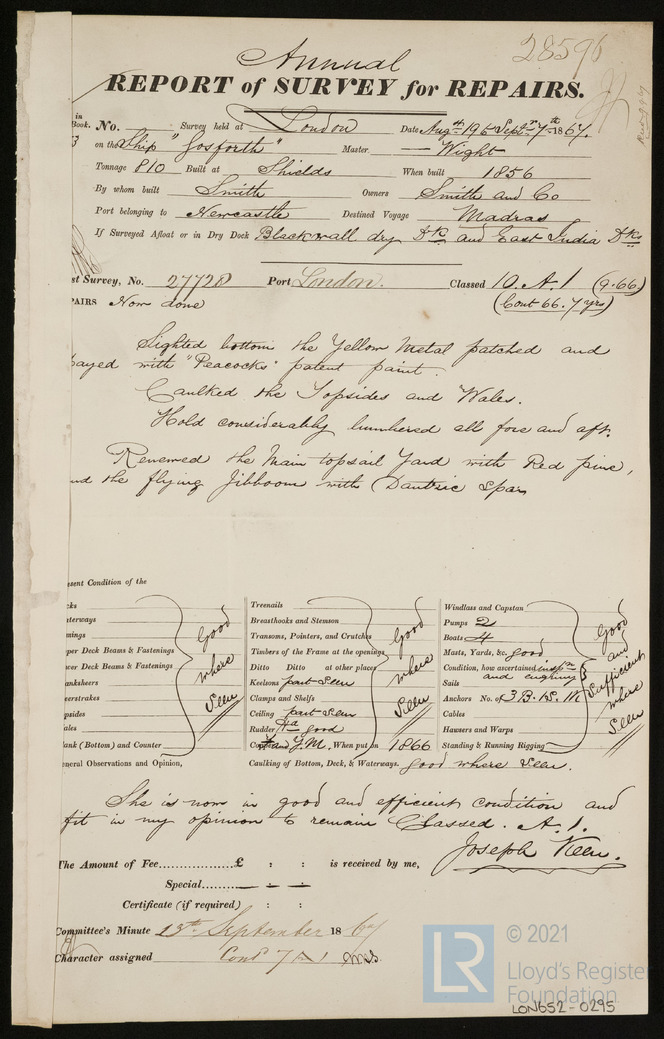 28596
Annual
REPORT of SURVEY for REPAIRS.
in
Book.
No. Survey held at London Date Augst 19 & Septr 7th 1867.
3 on the Ship "Gosforth" Master — Wight
Tonnage 810 Built at Shields When built 1856
By whom built Smith Owners Smith and Co
Port belonging to Newcastle Destined Voyage Madras
If Surveyed Afloat or in Dry Dock Blackwall dry Dk and East India Dks
st Survey, No. 27728 Port London. Classed 10. A. 1 (9.66)
(Cont 66. 7 yrs)
PAIRS Now done
Sighted bottom the Yellow Metal patched and
payed with "Peacocks" patent paint.
Caulked the Topsides and Wales.
Hold considerably lumbered all fore and aft.
Renewed the Main topsail Yard with Red pine,
nd the flying Jibboom with Dantzic Spar
esent Condition of the
cks
terways
mings
pper Deck Beams & Fastenings
wer Deck Beams & Fastenings
anksheers
eerstrakes
psides
ales
ank (Bottom) and Counter
Good
where
Seen
Treenails
Breasthooks and Stemson
Transoms, Pointers, and Crutches
Timbers of the Frame at the openings
Ditto Ditto at other places
Keelsons part seen
Clamps and Shelfs
Ceiling part seen
Rudder good
Y.M. When put on 1866
Good
where
Seen
Windlass and Capstan
Pumps 2
Boats 4
Masts, Yards, &c. good
Condition, how ascertained inspn
and enquiry
Sails
Anchors No. of 3 B. 1 S.
Cables
Hawsers and Warps
Standing & Running Rigging
Good
and
Sufficient
where
Seen
eneral Observations and Opinion,
Caulking of Bottom, Deck, & Waterways. good where seen.
She is now in good and efficient condition and
fit in my opinion to remain Classed. A. 1.
The Amount of Fee............... £ : : is received by me, Joseph Keen.
Special........ — — —
Certificate (if required) : :
Committee's Minute 13th September 1867
Character assigned Cond 7 A 1
© 2021
LR
Lloyd's Register
Foundation
LON652-0295